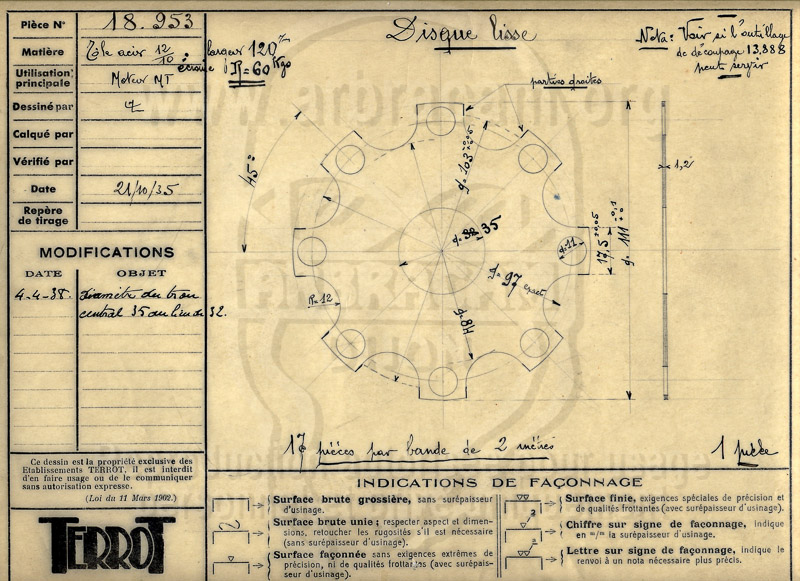 Pièce N° 18.953
Matière Tôle acier 12/10 écrouie largeur 120 %
R = 60 Kgs
Utilisation principale Moteur MT
Dessiné par
Calqué par
Vérifié par
Date 21/10/35
Repère de tirage
MODIFICATIONS
DATE OBJET
4-4-38. Diamètre du trou
central 35 au lieu de 32.
Ce dessin est la propriété exclusive des
Etablissements TERROT, il est interdit
d'en faire usage ou de le communiquer
sans autorisation expresse.
(Loi du 11 Mars 1902.)
TERROT
Disque lisse
Nota: Voir si l'outillage
de découpage 13,888
peut servir
parties droites
45°
d. 103
d. 32 35
d. 11
17,5 ±0,05
d. 111
1,2
d. 97 exact
R = 12
d. 84
17 pièces par bande de 2 mètres
1 pièce
INDICATIONS DE FAÇONNAGE
Surface brute grossière, sans surépaisseur
d'usinage.
Surface brute unie ; respecter aspect et dimen-
sions, retoucher les rugosités s'il est nécessaire
(sans surépaisseur d'usinage).
Surface façonnée sans exigences extrêmes de
précision, ni de qualités frottantes (avec surépais-
seur d'usinage).
Surface finie, exigences spéciales de précision et
de qualités frottantes (avec surépaisseur d'usinage).
Chiffre sur signe de faconnage, indique
en m/m la surépaisseur d'usinage.
Lettre sur signe de façonnage, indique le
renvoi à un nota nécessaire plus précis.
www.arbracam.org